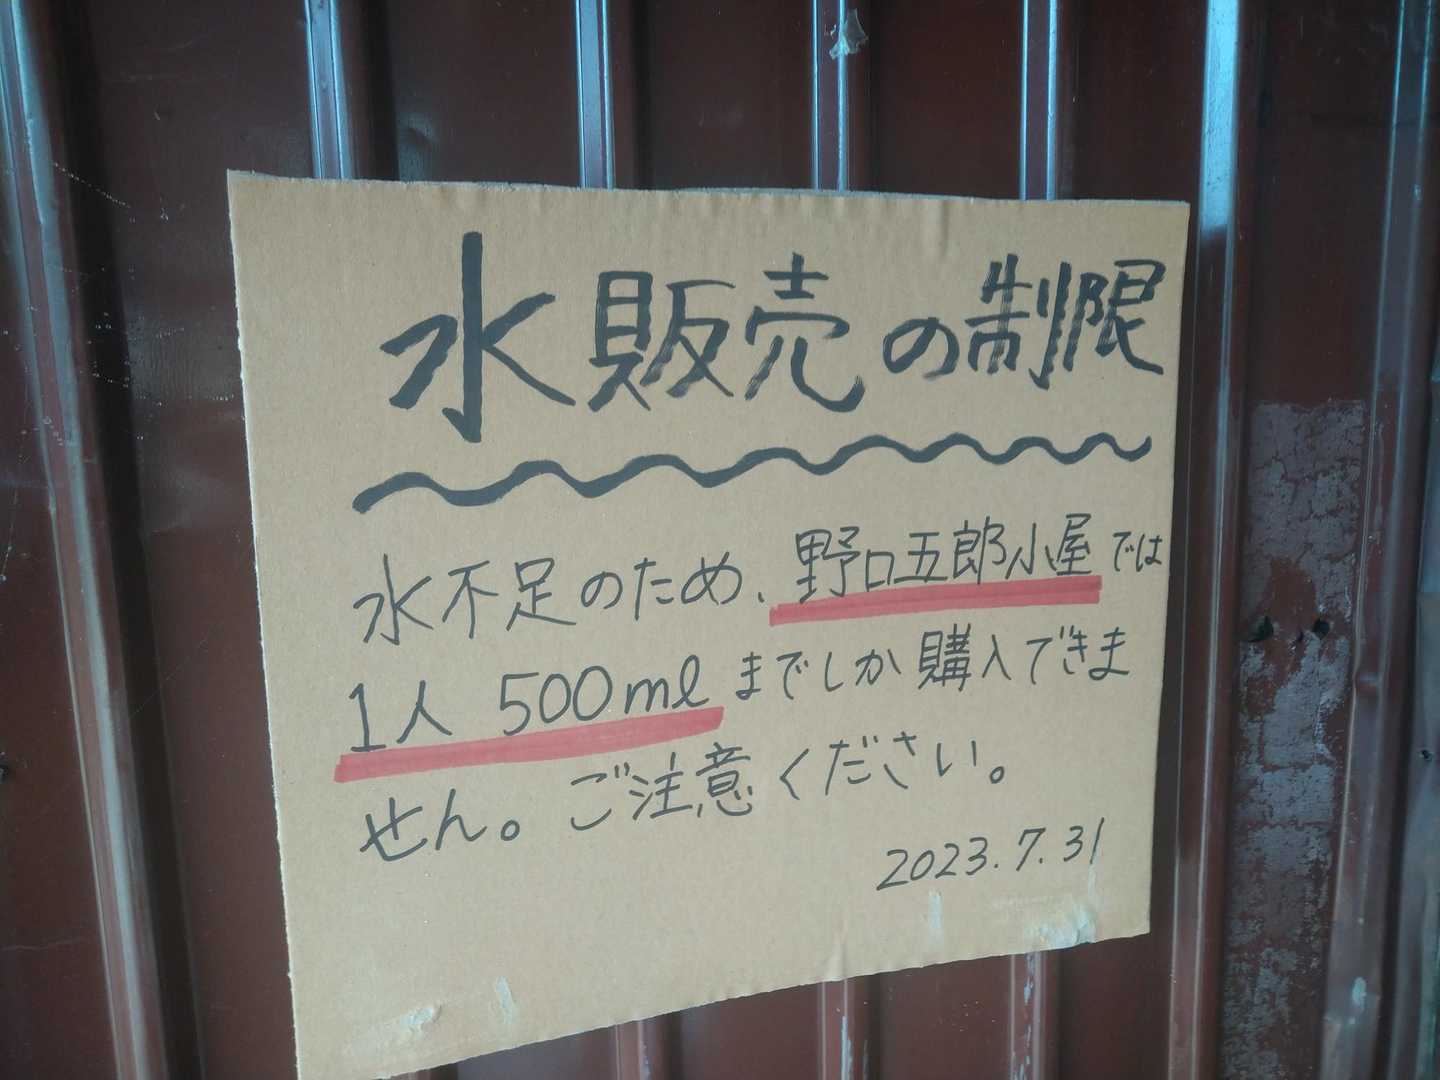 水販売の制限
水不足のため、野口五郎小屋では
1人 500mlまでしか購入できま
せん。ご注意ください。
2023.7.31